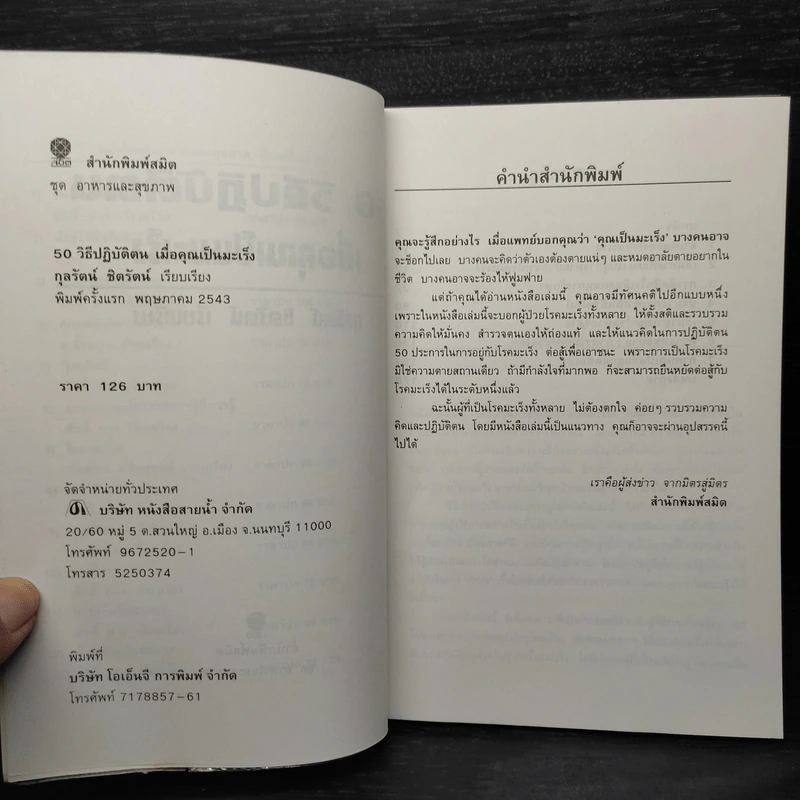 สมิต
สำนักพิมพ์สมิต
ชุด อาหารและสุขภาพ
50 วิธีปฏิบัติตน เมื่อคุณเป็นมะเร็ง
กุลรัตน์ ชิตรัตน์ เรียบเรียง
พิมพ์ครั้งแรก พฤษภาคม 2543
ราคา 126 บาท
จัดจำหน่ายทั่วประเทศ
บริษัท หนังสือสายน้ำ จำกัด
20/60 หมู่ 5 ต.สวนใหญ่ อ.เมือง จ.นนทบุรี 11000
โทรศัพท์ 9672520-1
โทรสาร 5250374
พิมพ์ที่
บริษัท โอเอ็นจี การพิมพ์ จำกัด
โทรศัพท์ 7178857-61
คำนำสำนักพิมพ์
คุณจะรู้สึกอย่างไร เมื่อแพทย์บอกคุณว่า ‘คุณเป็นมะเร็ง’ บางคนอาจ
จะช็อกไปเลย บางคนจะคิดว่าตัวเองต้องตายแน่ๆ และหมดอาลัยตายอยากใน
ชีวิต บางคนอาจจะร้องไห้ฟูมฟาย
แต่ถ้าคุณได้อ่านหนังสือเล่มนี้ คุณอาจมีทัศนคติไปอีกแบบหนึ่ง
เพราะในหนังสือเล่มนี้จะบอกผู้ป่วยโรคมะเร็งทั้งหลาย ให้ตั้งสติและรวบรวม
ความคิดให้มั่นคง สำรวจตนเองให้ถ่องแท้ และให้แนวคิดในการปฏิบัติตน
50 ประการในการอยู่กับโรคมะเร็ง ต่อสู้เพื่อเอาชนะ เพราะการเป็นโรคมะเร็ง
มิใช่ความตายสถานเดียว ถ้ามีกำลังใจที่มากพอ ก็จะสามารถยืนหยัดต่อสู้กับ
โรคมะเร็งได้ในระดับหนึ่งแล้ว
ฉะนั้นผู้ที่เป็นโรคมะเร็งทั้งหลาย ไม่ต้องตกใจ ค่อยๆ รวบรวมความ
คิดและปฏิบัติตน โดยมีหนังสือเล่มนี้เป็นแนวทาง คุณก็อาจจะผ่านอุปสรรคนี้
ไปได้
เราคือผู้ส่งข่าว จากมิตรสู่มิตร
สำนักพิมพ์สมิต